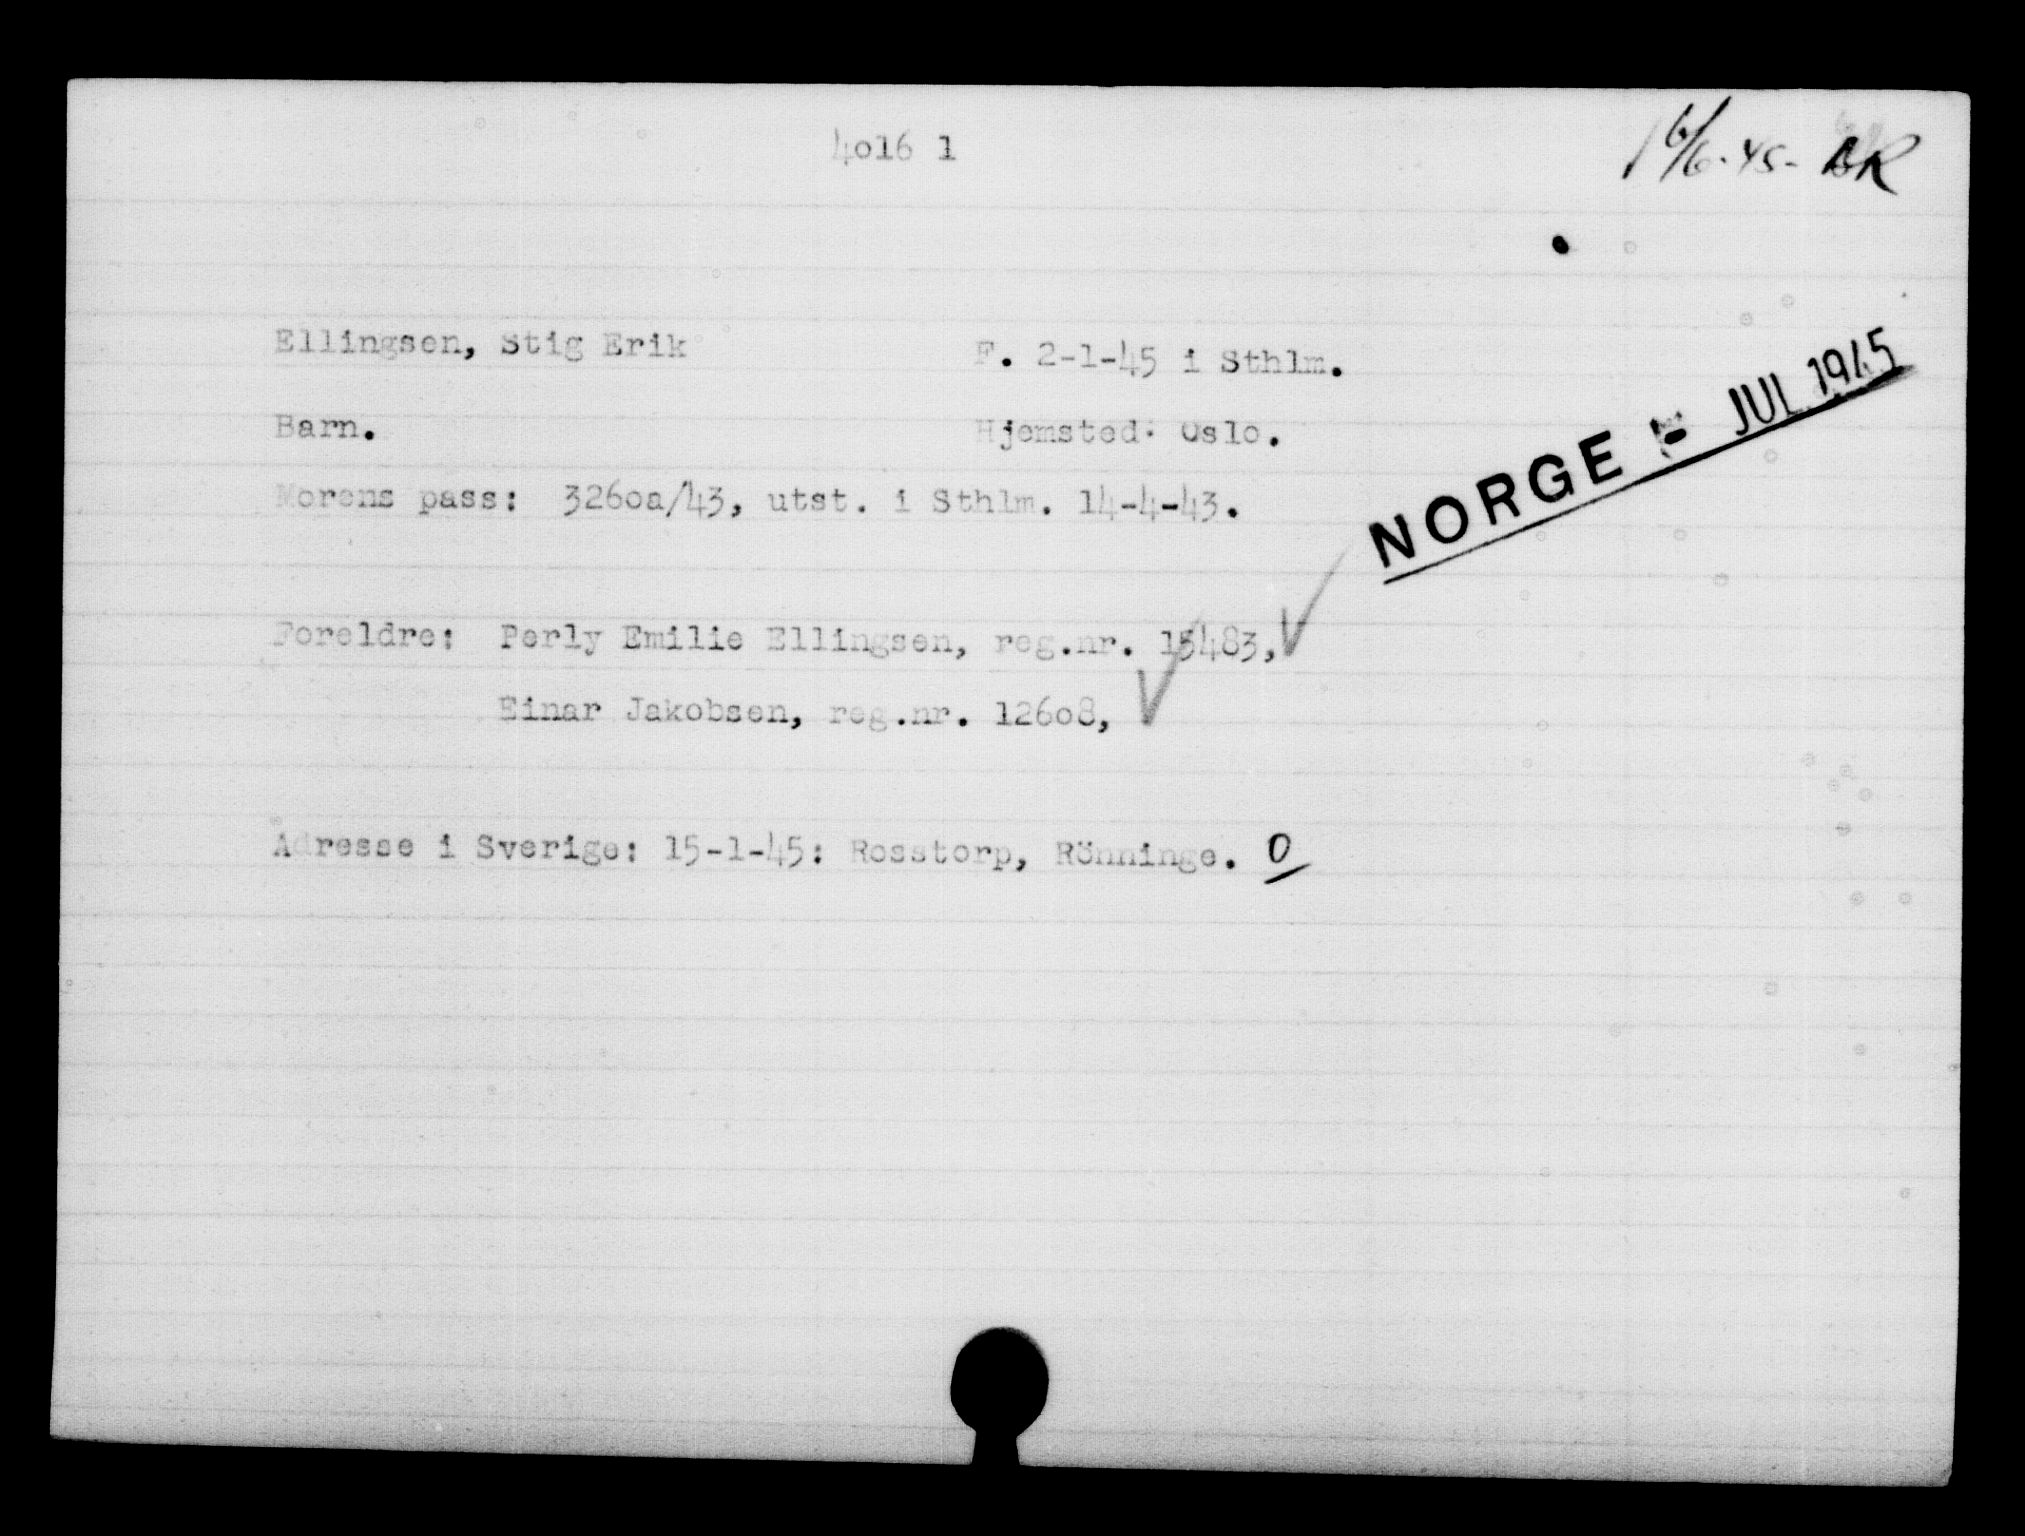 4016 1
16/6-45- AR
Ellingsen, Stig Erik F. 2-1-45 i Sthlm.
Barn. Hjemsted: Oslo.
NORGE - JUL 1945
Morens pass: 3260a/43, utst. i Sthlm. 14-4-43.
Foreldre: Perly Emilie Ellingsen, reg.nr. 15483,
Einar Jakobsen, reg.nr. 12608,
Adresse i Sverige: 15-1-45: Rosstorp, Rönninge. O